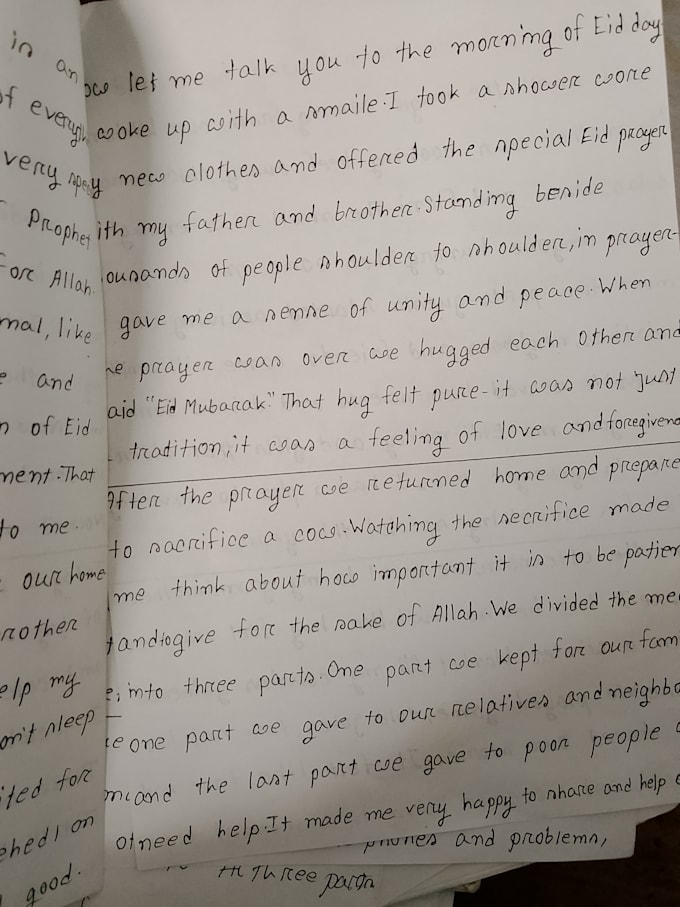 in an
of everyth
very spe
Prophet
for Allah.
mal, like
e and
n of Eid
ment. That
to me.
our home
rother
elp my
on't sleep
ited for
ched on
good.
ow let me talk you to the morning of Eid day
woke up with a smaile. I took a shower wore
y new clothes and offered the special Eid prayer
ith my father and brother. Standing beside
ousands of people shoulder to shoulder, in prayer
gave me a sense of unity and peace. When
he prayer was over we hugged each other and
aid "Eid Mubarak." That hug felt pure - it was not just
tradition, it was a feeling of love and foregivene
After the prayer we returned home and prepare
to sacrifice a cow. Watching the secrifice made
me think about how important it is to be patien
t and to give for the sake of Allah. We divided the me
into three parts. One part we kept for our fam
one part we gave to our relatives and neighbo
and the last part we gave to poor people
need help. It made me very happy to share and help
phones and problems,
three parts